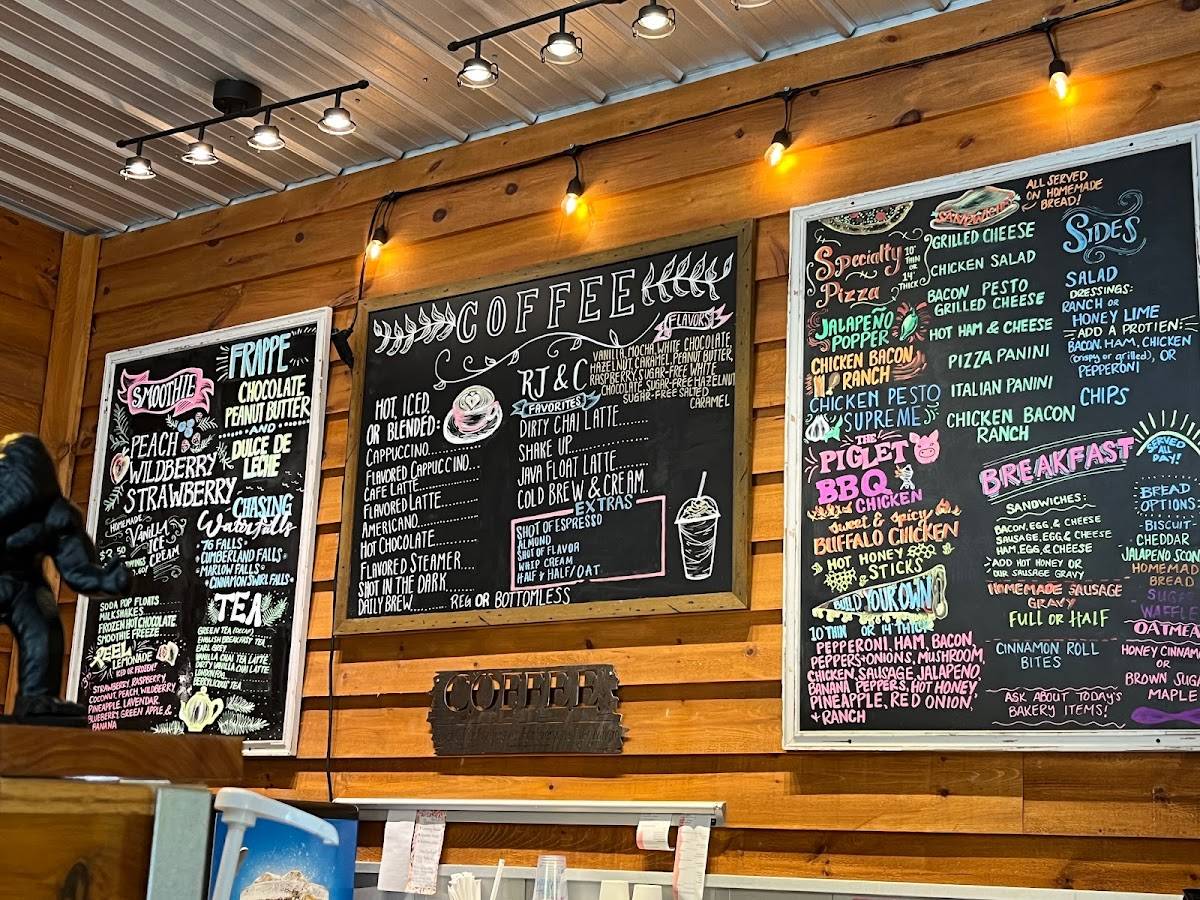 SMOOTHIE
PEACH
WILDBERRY
STRAWBERRY
HOMEMADE
VANILLA
ICE
CREAM
SODA POP FLOATS
MILKSHAKES
FROZEN HOT CHOCOLATE
SMOOTHIE FREEZE
REEL
LEMONADE
ICED OR FROZEN!
STRAWBERRY, RASPBERRY,
COCONUT, PEACH, WILDBERRY
PINEAPPLE, LAVENDAR,
BLUEBERRY, GREEN APPLE &
BANANA
FRAPPE
CHOCOLATE
PEANUT BUTTER
AND
DULCE DE
LECHE
CHASING
Waterfalls
76 FALLS
CUMBERLAND FALLS
MARLOW FALLS
CINNAMON SWIRL FALLS
TEA
GREEN TEA (DECAF)
ENGLISH BREAKFAST TEA
EARL GREY
VANILLA CHAI TEA LATTE
DIRTY VANILLA CHAI LATTE
LONDON FOG
TEA
COFFEE
HOT, ICED
OR BLENDED:
CAPPUCCINO......
FLAVORED CAPPUCCINO....
CAFE LATTE..........
FLAVORED LATTE.........
AMERICANO...............
HOT CHOCOLATE.........
FLAVORED STEAMER....
SHOT IN THE DARK......
DAILY BREW.......... REG OR BOTTOMLESS
FLAVORS
VANILLA, MOCHA, WHITE CHOCOLATE,
HAZELNUT, CARAMEL, PEANUT BUTTER,
RASPBERRY, SUGAR-FREE WHITE
CHOCOLATE, SUGAR-FREE HAZELNUT
SUGAR-FREE SALTED
CARAMEL
RJ & C
FAVORITES
DIRTY CHAI LATTE.......
SHAKE UP...............
JAVA FLOAT LATTE.......
COLD BREW & CREAM..
EXTRAS
SHOT OF ESPRESSO
ALMOND
SHOT OF FLAVOR
WHIP CREAM
HALF & HALF/OAT
COFFEE
SPECIALTY
PIZZA
10"
THIN
OR
14"
THICK
JALAPEÑO
POPPER
CHICKEN BACON
RANCH
CHICKEN PESTO
SUPREME
THE
PIGLET
BBQ
CHICKEN
SWEET & SPICY
BUFFALO CHICKEN
HOT HONEY
& STICKS
BUILD YOUR OWN
10" THIN OR 14" THICK
PEPPERONI, HAM, BACON,
PEPPERS+ONIONS, MUSHROOM,
CHICKEN, SAUSAGE, JALAPENO,
BANANA PEPPERS, HOT HONEY,
PINEAPPLE, RED ONION,
+ RANCH
SANDWICHES
ALL SERVED
ON HOMEMADE
BREAD!
GRILLED CHEESE
CHICKEN SALAD
BACON PESTO
GRILLED CHEESE
HOT HAM & CHEESE
PIZZA PANINI
ITALIAN PANINI
CHICKEN BACON
RANCH
SIDES
SALAD
DRESSINGS:
RANCH OR
HONEY LIME
ADD A PROTIEN:
BACON, HAM, CHICKEN
(crispy or grilled), OR
PEPPERONI
CHIPS
BREAKFAST
SERVED
ALL
DAY!
SANDWICHES:
BACON, EGG, & CHEESE
SAUSAGE, EGG, & CHEESE
HAM, EGG, & CHEESE
ADD HOT HONEY OR
OUR SAUSAGE GRAVY
HOMEMADE SAUSAGE
GRAVY
FULL OR HALF
CINNAMON ROLL
BITES
ASK ABOUT TODAY'S
BAKERY ITEMS!
BREAD
OPTIONS
BISCUIT
CHEDDAR
JALAPENO SCON
HOMEMAD
BREAD
SUGA
WAFFLE
OATMEA
HONEY CINNAM
OR
BROWN SUGA
MAPLE